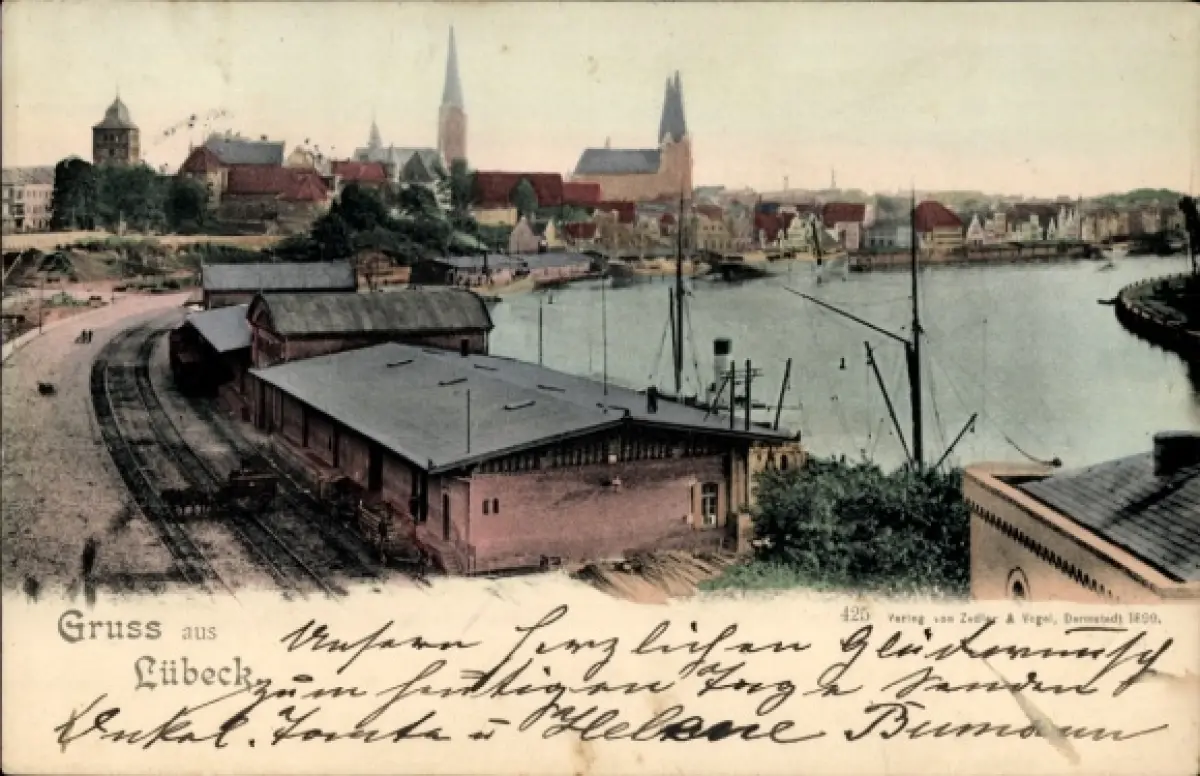 Gruss aus
Lübeck
425 Verlag von Zedler & Vogel, Darmstadt 1899.
Unsern herzlichen Glückwunsch
zum heutigen Tage senden
Onkel, Tante u Helene Bumann